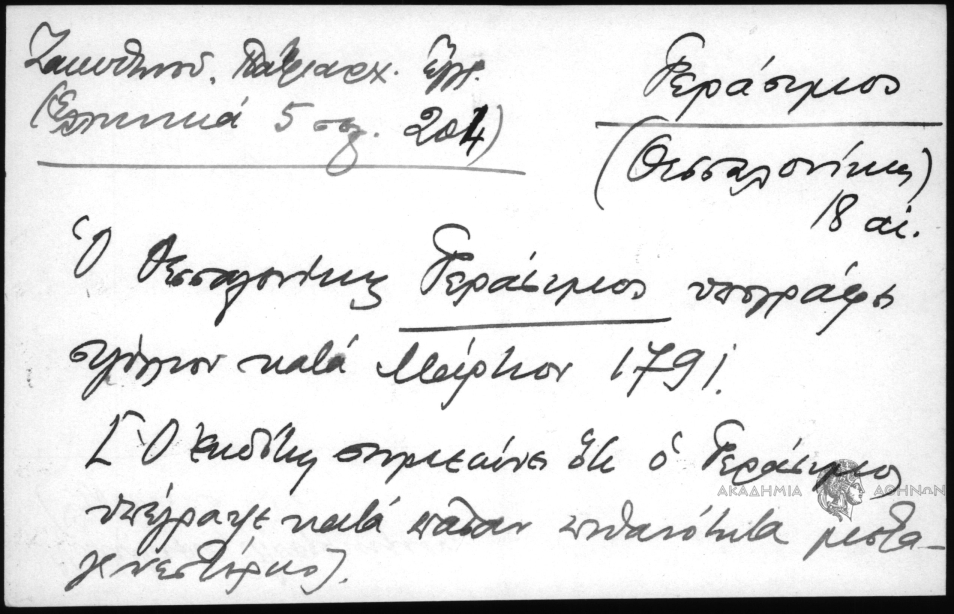 Ζακυθηνοῦ, Πατριαρχ. Ἔγγρ.
(Ἑλληνικά 5 σελ. 204)
Γεράσιμος
(Θεσσαλονίκης)
18 αἰ.
Ὁ Θεσσαλονίκης Γεράσιμος ὑπογράφει
κατά Μάρτιον 1791.
[Ὁ ἐκδότης σημειώνει ὅτι ὁ Γεράσιμος
ὑπέγραψε κατά πᾶσαν πιθανότητα μετα-
γενεστέρως].
ΑΚΑΔΗΜΙΑ ΑΘΗΝΩΝ